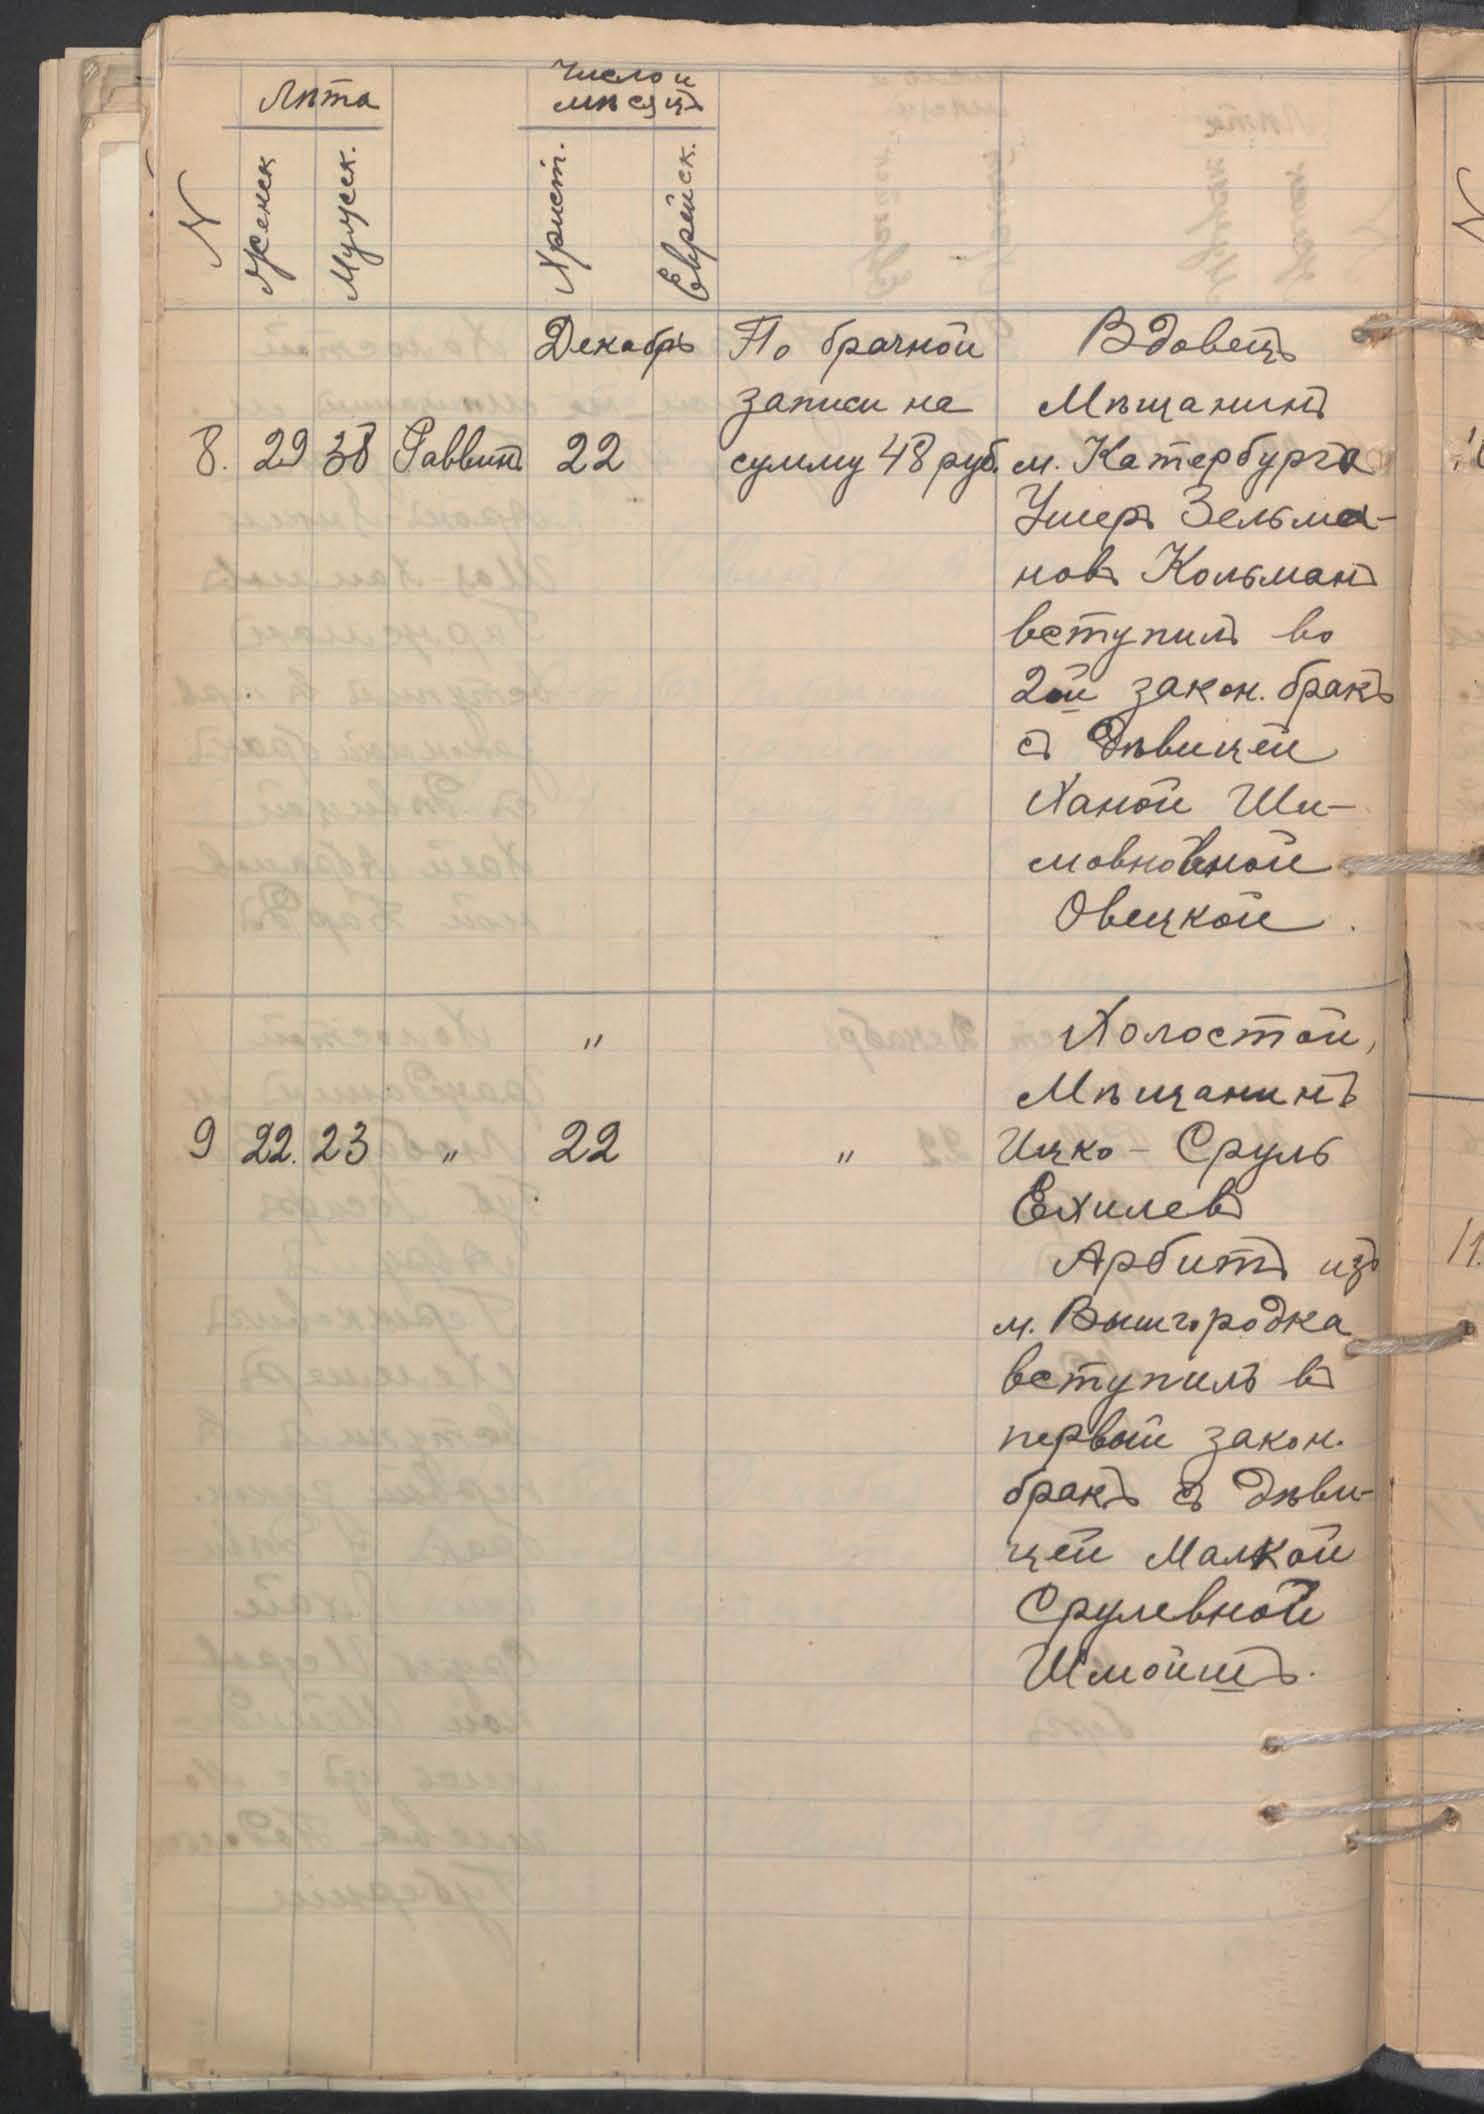 Лѣта
Число и
мѣсяцъ
N
Женск
Мужеск.
Христ.
Еврейск.
Декабрь По брачной Вдовецъ
записи на Мѣщанинъ
8. 29 38 Раввинъ 22 сумму 48 руб. м. Катербурга
Ушеръ Зельма-
новъ Кольманъ
вступилъ во
2ой закон. бракъ
съ Дѣвицей
Ханой Ши-
мовновной
Овецкой.
" Холостой,
Мѣщанинъ
9 22. 23 " 22 " Ицко - Сруль
Ехилевъ
Арбитъ изъ
м. Вышгородка
вступилъ въ
первый закон.
бракъ съ дѣви-
цей Малкой
Срулевной
Шмойшъ.